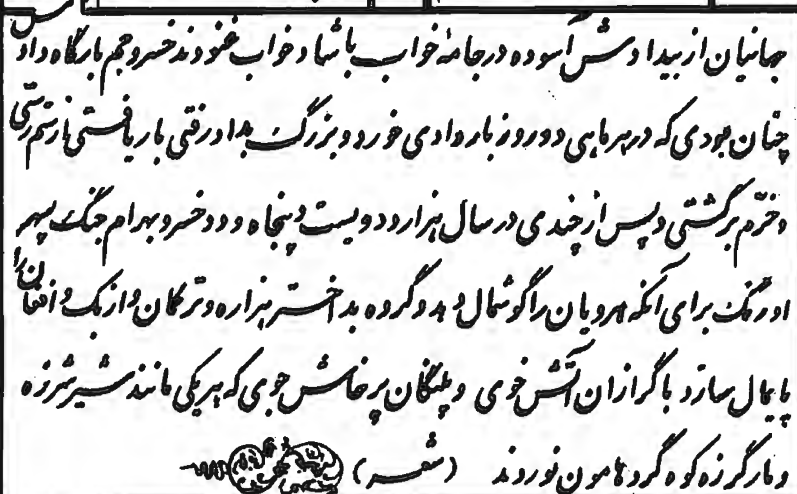 جهانیان از بیدادش آسوده در جامهٔ خواب باشاد خواب غنودند خسرو جم بارگاه داد
چنان بودی که در هر ماهی دو روز بار دادی خورد و بزرگ بداد رفتی بار یافتی از ستم رستی
و خرّم برگشتی و پس از چندی در سال هزار و دویست و پنجاه و دو خسرو بهرام جنگ سپهر
اورنگ برای آنکه هرویان را گوشمال دهد و گروه بد اختر هزاره و ترکان و ازبک و افغان را
پایمال سازد با گرازان آتش خوی و پلنگان پرخاش جوی که هر یکی مانند شیر شرزه
و مار گرزه کوه گرد هامون نوردند (شعر)